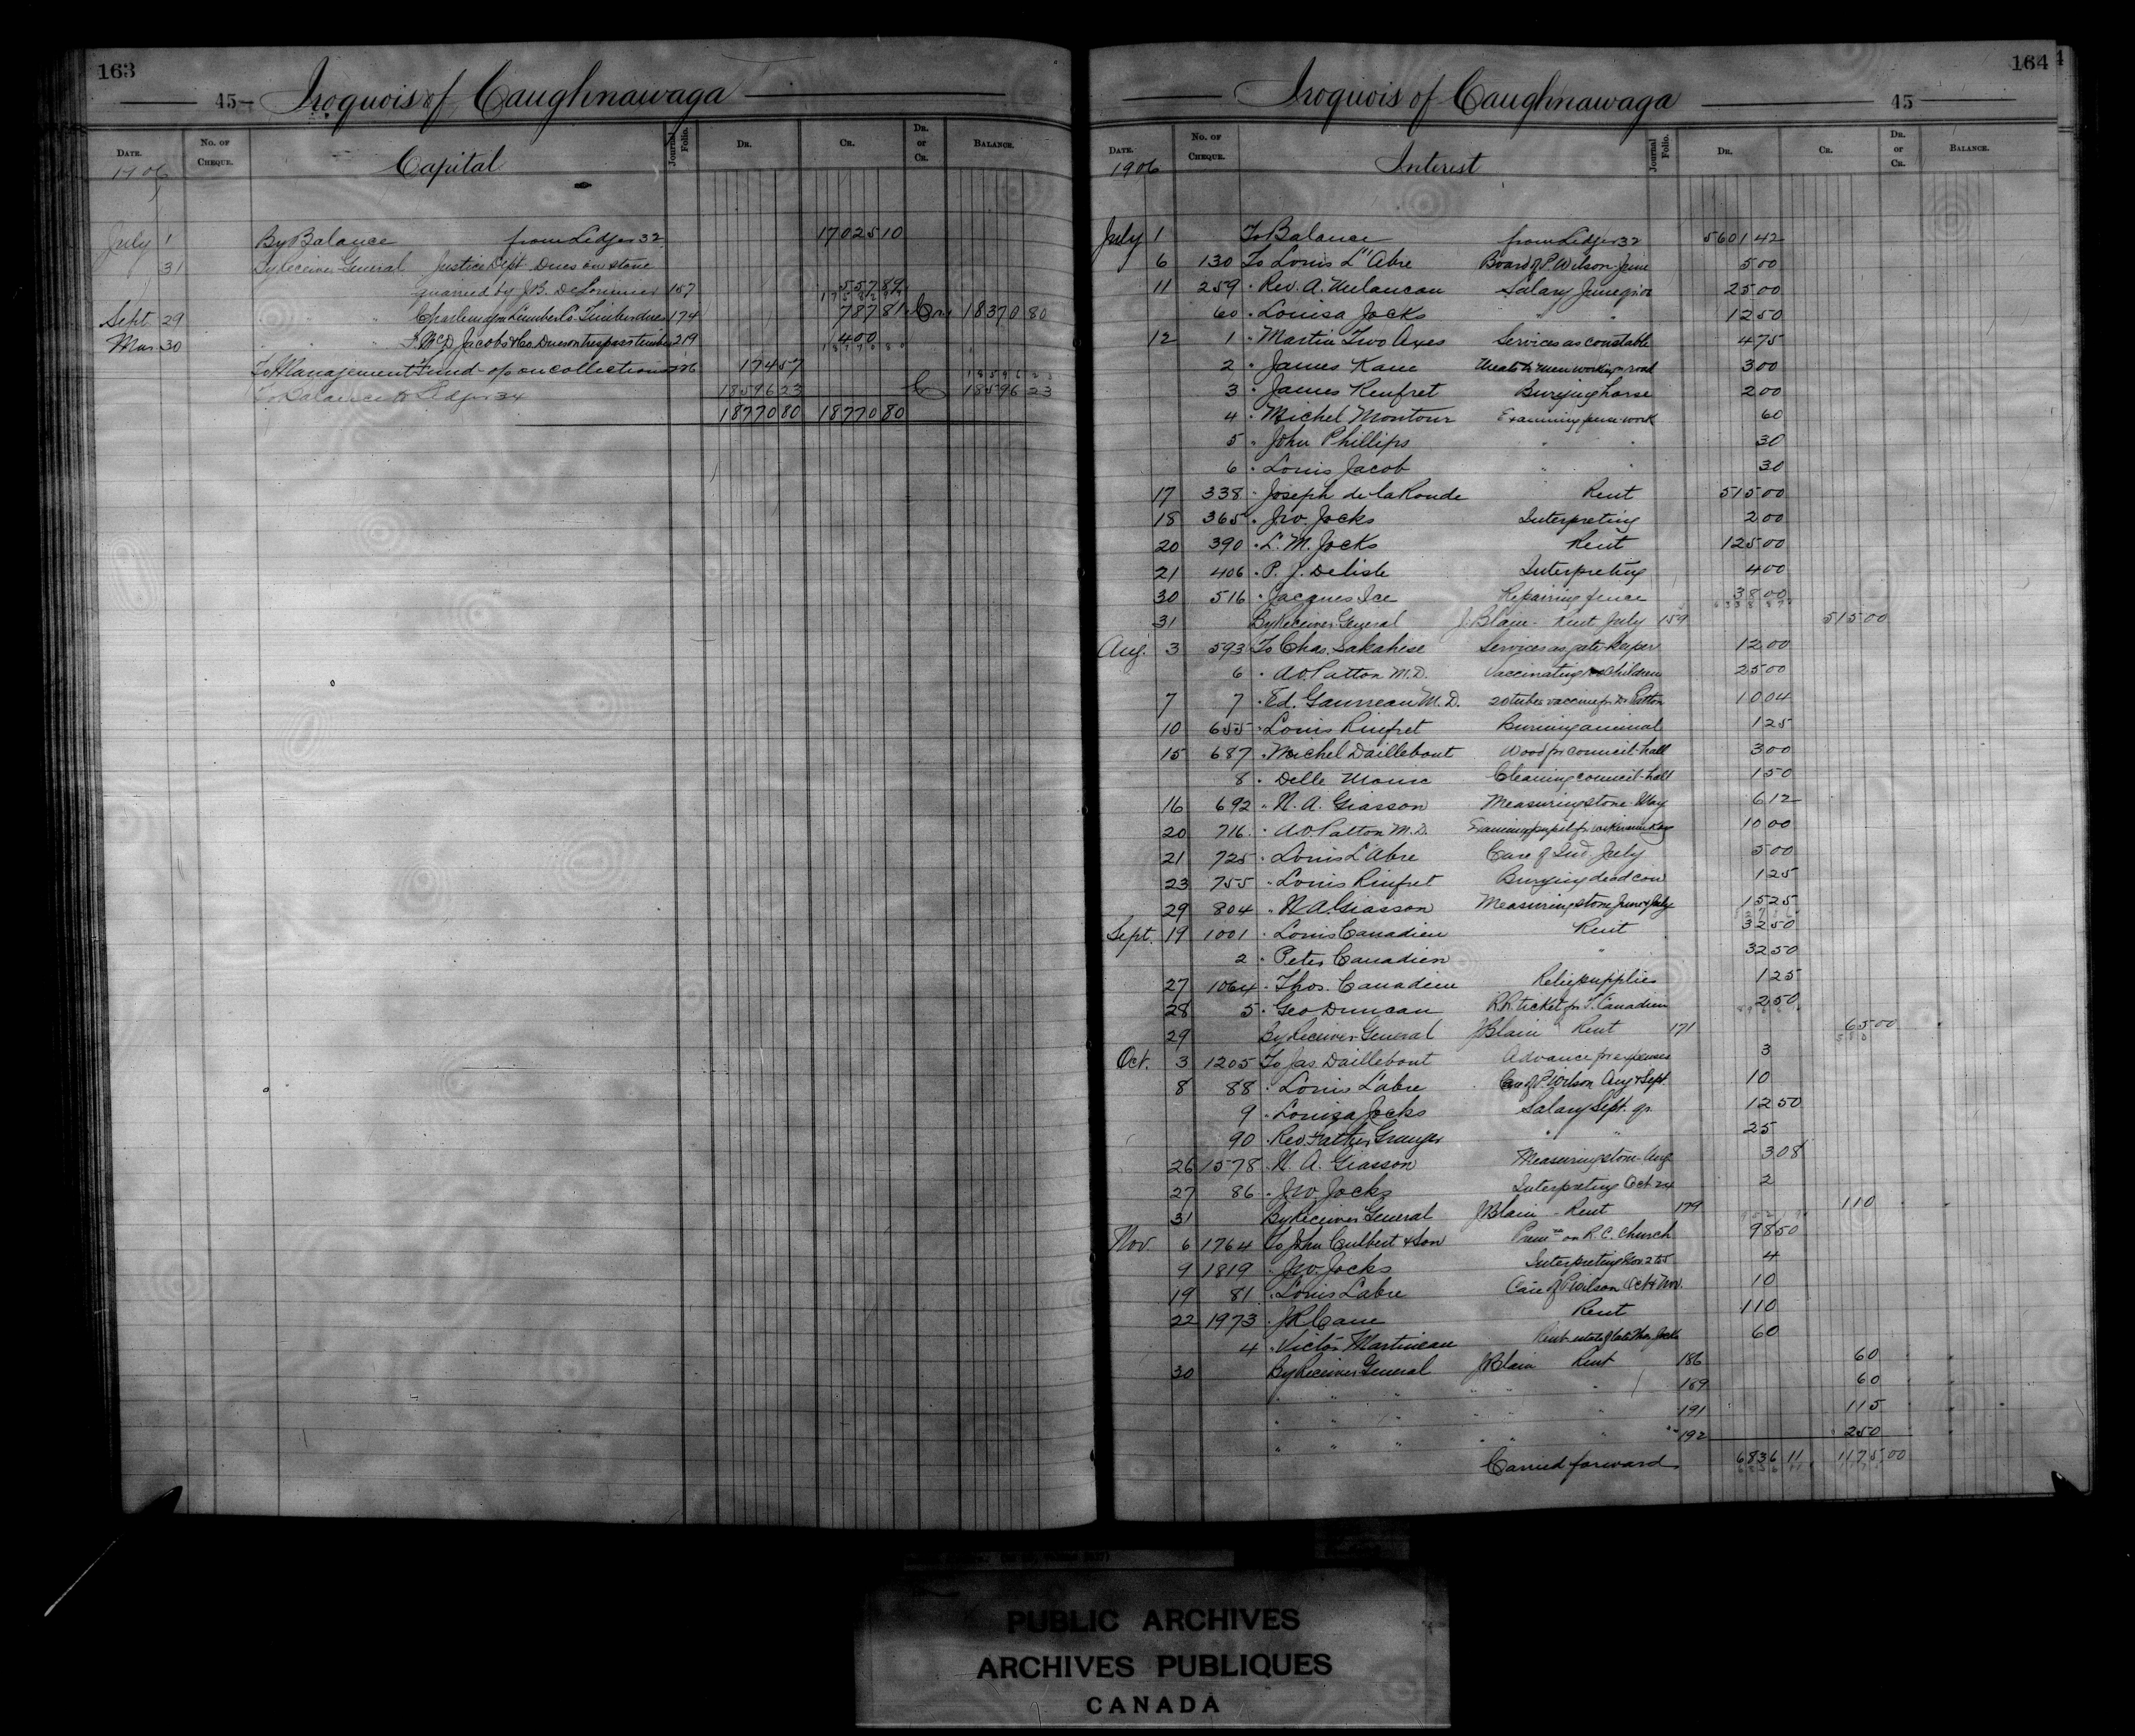 163
45 Iroquois of Caughnawaga
DATE. No. OF CHEQUE. Capital Journal Folio. DR. CR. DR. or CR. BALANCE.
1906
July 1 By Balance from Ledger 32 17025 10
31 By Receiver General Justice Dept Dues on stone
quarried by J.B. DeLorimier 157 557 89
Sept. 29 " " Charlemagne Lumber Co. Timber dues 174 787 81 Cr. 18370 80
Mar 30 " " McD Jacobs & Co. Dues on trespass timber 219 400
To Management Fund - on collections 226 174 57
To Balance to Ledger 34 18596 23 Cr 18596 23
18770 80 18770 80
164
Iroquois of Caughnawaga 45
DATE. No. OF CHEQUE. Interest Journal Folio. DR. CR. DR. or CR. BALANCE.
1906
July 1 To Balance from Ledger 32 5601 42
6 130 To Louis L'Abre Board of P. Wilson June 5 00
11 259 " Rev. A. Melancon Salary June qr 06 25 00
60 " Louisa Jocks " " 12 50
12 1 " Martin Two Axes Services as constable 4 75
2 " James Kane Meals to men working on road 3 00
3 " James Renfret Burying horse 2 00
4 " Michel Montour Examining fence work 60
5 " John Phillips " " 30
6 " Louis Jacob " " 30
17 338 " Joseph de la Ronde Rent 515 00
18 365 " Jno. Jocks Interpreting 2 00
20 390 " L. M. Jocks Rent 125 00
21 406 " P. J. Delisle Interpreting 4 00
30 516 " Jacques Ice Repairing fence 38 00
31 By Receiver General J. Blain - Rent July 159 515 00
Aug. 3 593 To Chas. Sakahese Services as gate keeper 12 00
6 " A.O. Patton M.D. Vaccinating children 25 00
7 7 " Ed. Gauvreau M.D. 20 tubes vaccine for Dr Patton 10 04
10 655 " Louis Rinfret Burning animal 1 25
15 687 " Michel Daillebout Wood for council-hall 3 00
8 " Delle Marie Cleaning council-hall 1 50
16 692 " N. A. Giasson Measuring stone May 6 12
20 716 " A.O. Patton M.D. 10 00
21 725 " Louis L'Abre Care of Ind. July 5 00
23 755 " Louis Rinfret Burying dead cow 1 25
29 804 " N. A. Giasson Measuring stone June & July 15 25
Sept. 19 1001 " Louis Canadien Rent 32 50
2 " Peter Canadien " 32 50
27 1064 " Thos. Canadien Relief supplies 1 25
28 5 " Geo Duncan R.R. ticket for T. Canadien 2 50
29 By Receiver General J Blain Rent 171 65 00
Oct. 3 1205 To Jas Daillebout Advance for expenses 3
8 88 " Louis Labre Care of P. Wilson Aug & Sept. 10
9 " Louiza Jocks Salary Sept. qr. 12 50
90 " Rev Father Granger " " 25
26 1578 " N. A. Giasson Measuring stone Aug 3 08
27 86 " Jno. Jocks Interpreting Oct 24 2
31 By Receiver General J Blain - Rent 179 110
Nov 6 1764 To John Culbert & Son Prem on R.C. Church 98 50
9 1819 " Jno. Jocks Interpreting Nov 2 & 5 4
19 81 " Louis Labre Care of P. Wilson Oct & Nov. 10
22 1973 " J R Cane Rent 110
4 " Victor Martineau Rent estate of late Thos Jocks 60
30 By Receiver General J Blain Rent 186 60
" " " " " " 189 60
" " " " " " 191 115
" " " " " " 192 250
Carried forward 6836 11 1175 00
PUBLIC ARCHIVES
ARCHIVES PUBLIQUES
CANADA